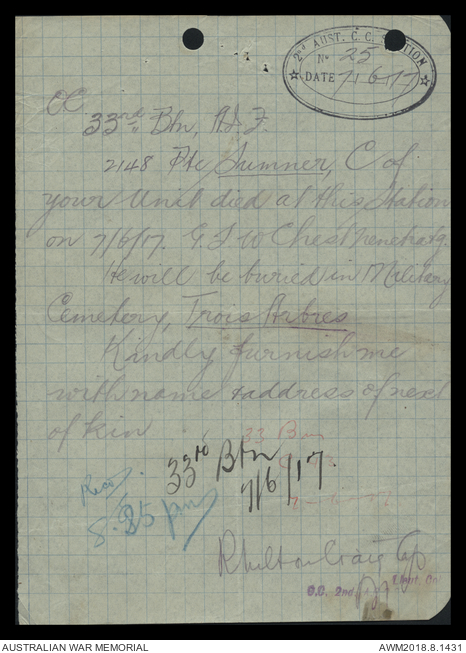 2nd AUST. C. C. STATION
No 25
DATE 7/6/17
OC
33rd Btn, A.I.F.
2148 Pte Sumner, C of
your Unit died at this Station
on 7/6/17. G.S.W Chest Penetratg.
He will be buried in Military
Cemetery, Trois Arbres
Kindly furnish me
with name & address of next
of kin
33 Bn
33rd Btn
7/6/17.
Recd
8.25 pm
O.C. 2nd
AUSTRALIAN WAR MEMORIAL
AWM2018.8.1431